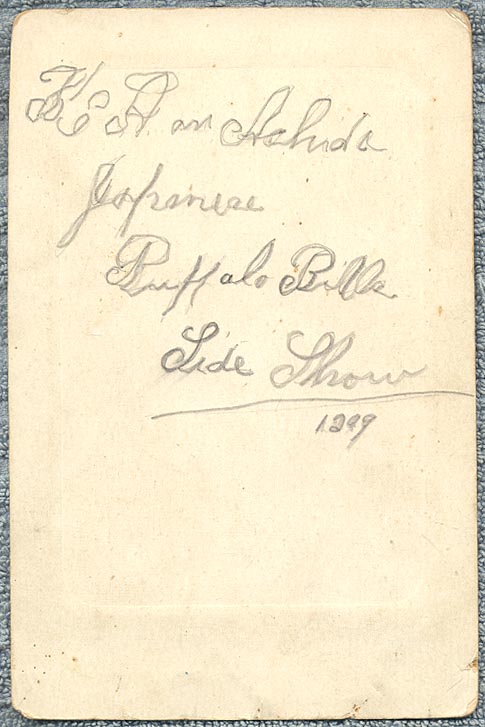 K E A an Ashida
Japanese
Buffalo Bills
Side Show
1899